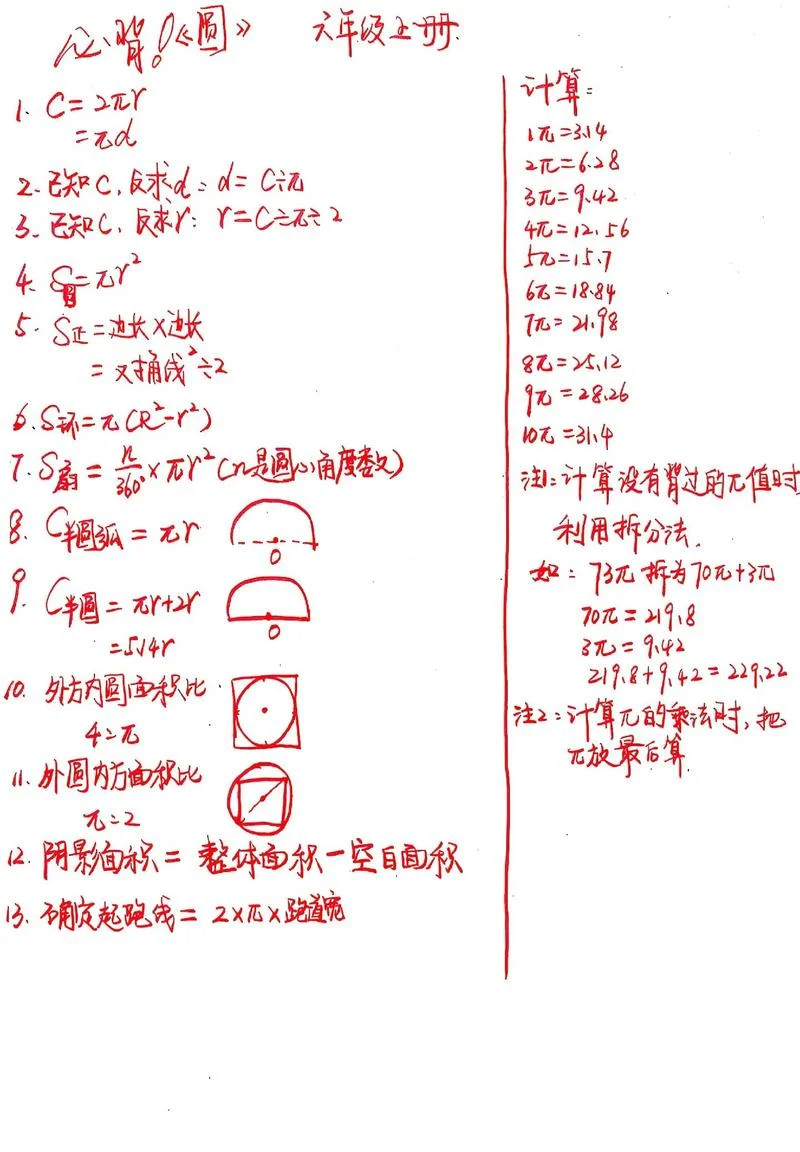 必背!《圆》 六年级上册
1. C=2πr
=πd
2. 已知C,反求d:d=C÷π
3. 已知C,反求r:r=C÷π÷2
4. S圆=πr²
5. S正=边长×边长
=对角线²÷2
6. S环=π(R²-r²)
7. S扇=n/360°×πr²(n是圆心角度数)
8. C半圆弧=πr
O
9. C半圆=πr+2r
=5.14r
O
10. 外方内圆面积比
4:π
11. 外圆内方面积比
π:2
12. 阴影面积=整体面积-空白面积
13. 确定起跑线=2×π×跑道宽
计算:
1π=3.14
2π=6.28
3π=9.42
4π=12.56
5π=15.7
6π=18.84
7π=21.98
8π=25.12
9π=28.26
10π=31.4
注1:计算没有背过的π值时
利用拆分法.
如:73π拆为70π+3π
70π=219.8
3π=9.42
219.8+9.42=229.22
注2:计算π的乘法时,把
π放最后算.